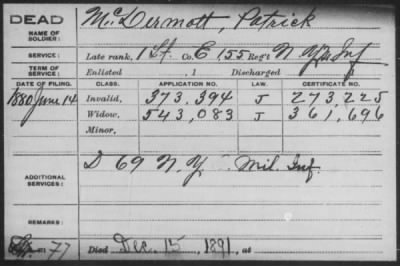 DEAD
NAME OF SOLDIER: McDermott, Patrick
SERVICE: Late rank, 1 Lt. Co. C, 155 Reg't N. Y. Inf
TERM OF SERVICE: Enlisted , 1 Discharged
DATE OF FILING. CLASS. APPLICATION NO. LAW. CERTIFICATE NO.
1880 June 14 Invalid, 373,394 J 273,225
Widow, 543,083 J 361,696
Minor,
ADDITIONAL SERVICES: D 69 N. Y. Mil. Inf.
REMARKS:
77 Died Dec. 15, 1891, at